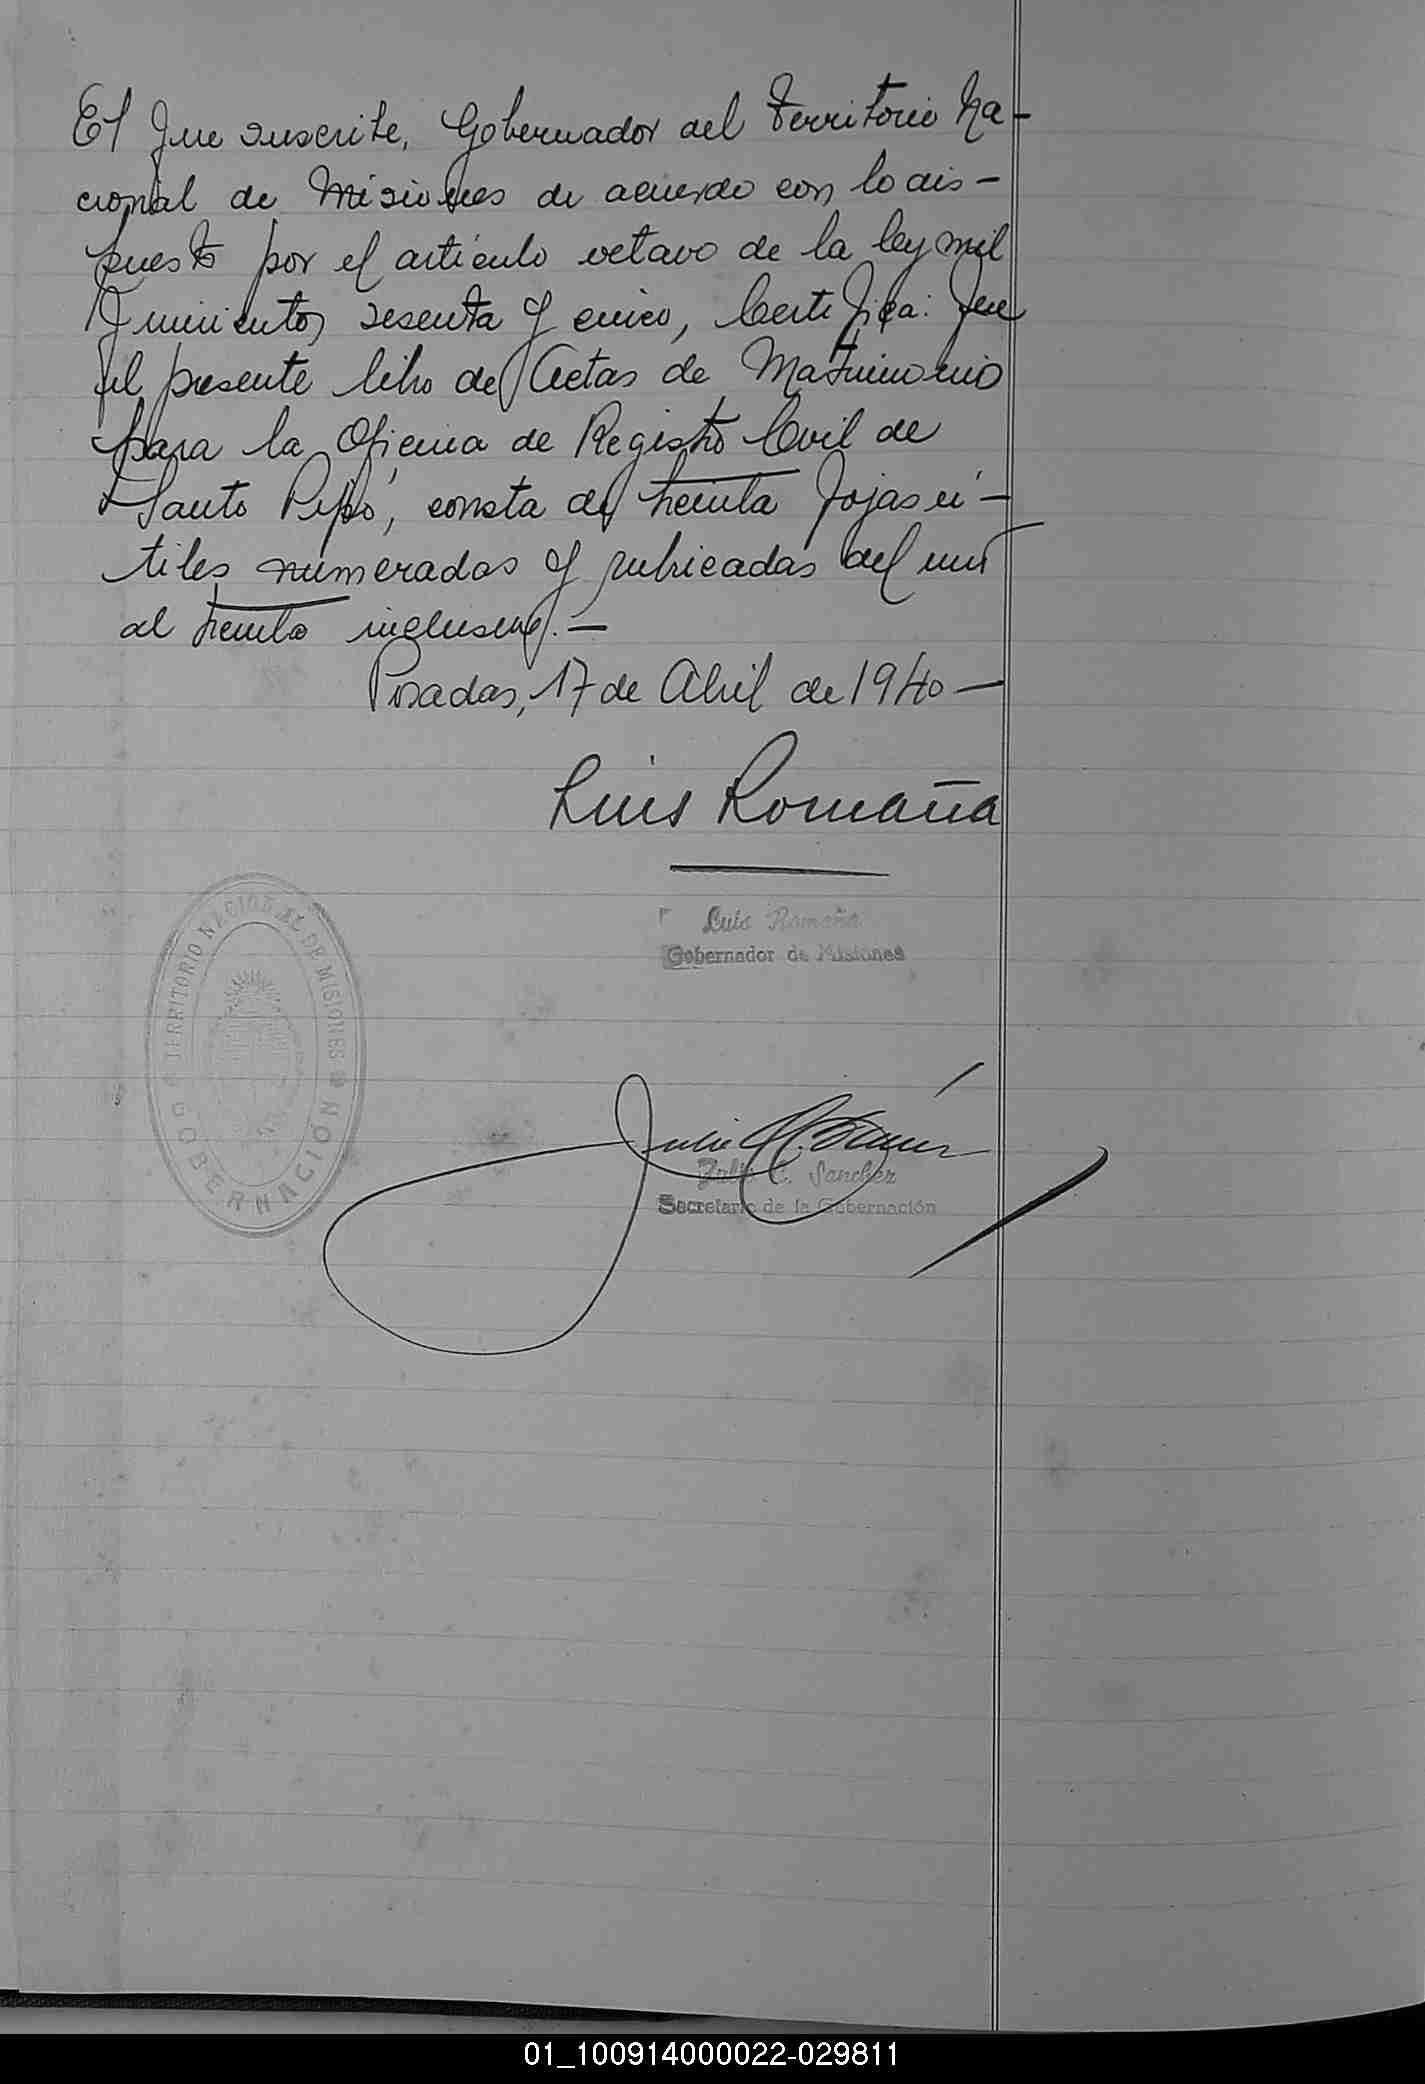 El que suscribe, Gobernador del Territorio Na-
cional de Misiones de acuerdo con lo dis-
puesto por el artículo octavo de la ley mil
quinientos sesenta y cinco, Certifica: Que
el presente libro de Actas de Matrimonio
para la Oficina de Registro Civil de
Santo Pipó, consta de treinta fojas ú-
tiles numeradas y rubricadas del uno
al treinta inclusive.—
Posadas, 17 de Abril de 1940—
Luis Romaña
Luis Romaña
Gobernador de Misiones
TERRITORIO NACIONAL DE MISIONES
GOBERNACIÓN
Julio C. Sanchez
Julio C. Sanchez
Secretario de la Gobernación
01_100914000022-029811